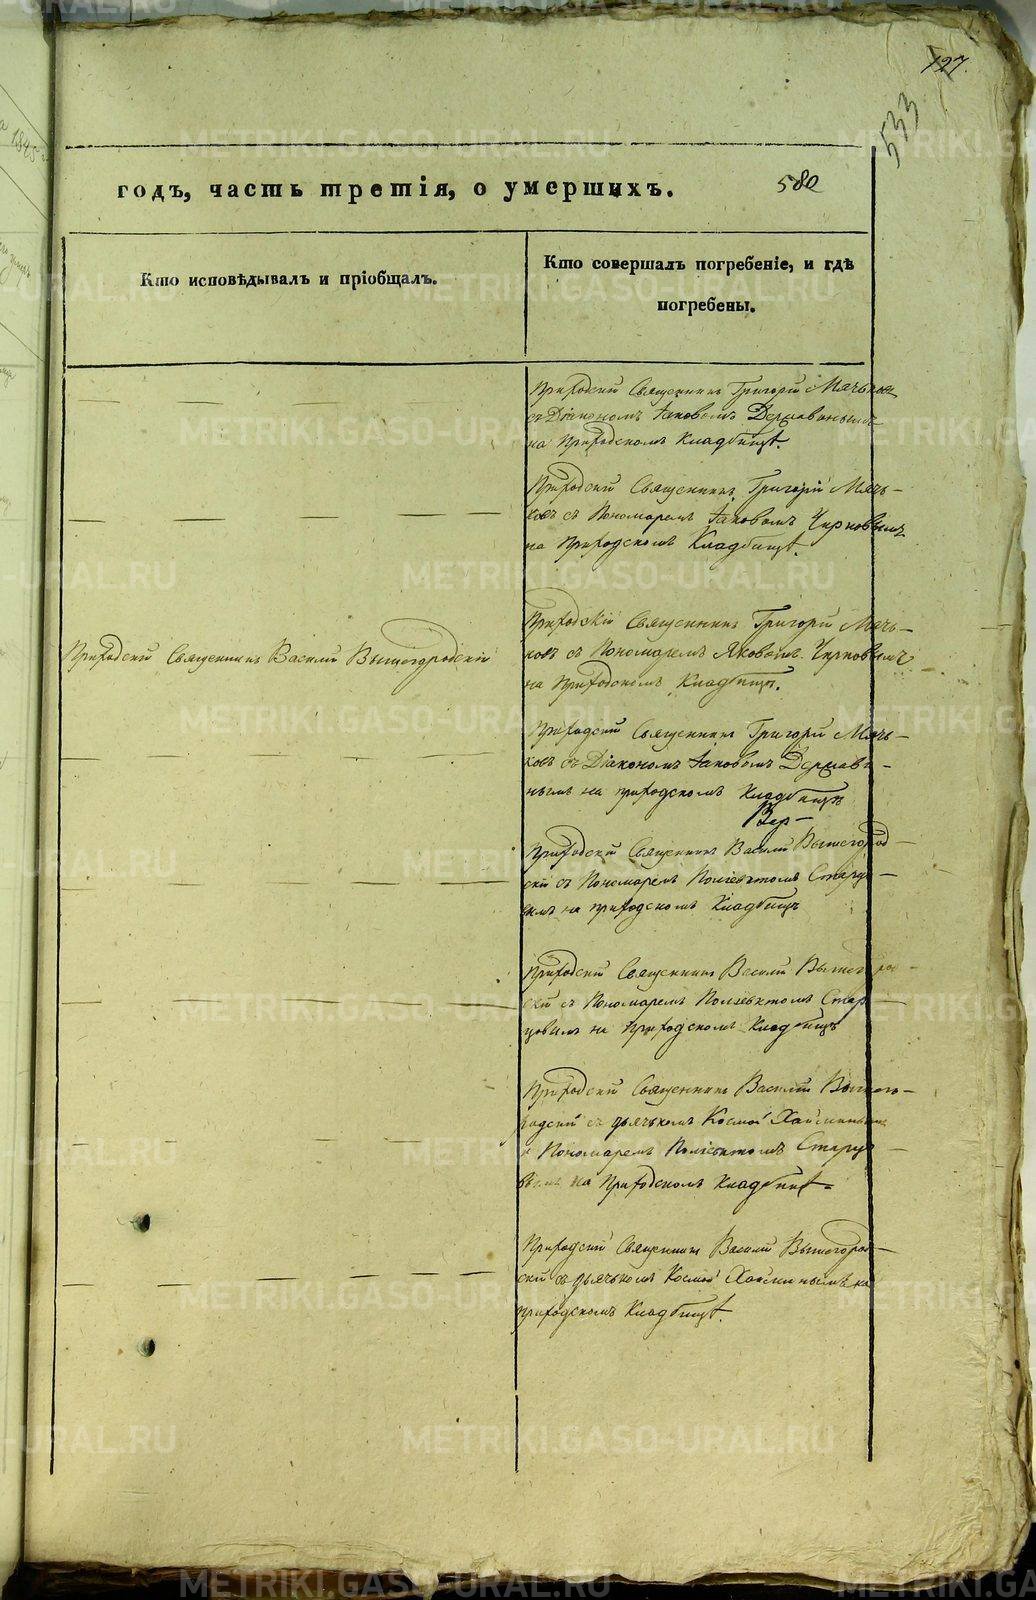 127.
533
годъ, часть третія, о умершихъ. 580
Кто исповѣдывалъ и пріобщалъ.
Кто совершалъ погребеніе, и гдѣ
погребены.
Приходскій Священникъ Григорій Мячьковъ
съ Діакономъ Іаковомъ Державинымъ
на Приходскомъ Кладбищѣ.
Приходскій Священникъ Григорій Мячь-
ковъ съ Пономаремъ Іаковомъ Чирковымъ
на Приходскомъ Кладбищѣ.
Приходскій Священникъ Василій Вышегородскій
Приходскій Священникъ Григорій Мячь-
ковъ съ Пономаремъ Яковомъ Чирковымъ
на Приходскомъ Кладбищѣ.
Приходскій Священникъ Григорій Мячь-
ковъ съ Діакономъ Іаковомъ Держави-
нымъ на приходскомъ Кладбищѣ
Приходскій Священникъ Василій Вышегород-
скій съ Пономаремъ Поліевктомъ
на приходскомъ Кладбищѣ
Приходскій Священникъ Василій Вышегород-
скій съ Пономаремъ Поліевктомъ Стар-
цовымъ на Приходскомъ Кладбищѣ
Приходскій Священникъ Василій Вышего-
родскій съ дьячькомъ Космой
и Пономаремъ Поліевктомъ Старцо-
вымъ на Приходскомъ Кладбищѣ.
Приходскій Священникъ Василій Вышегород-
скій съ дьячькомъ Космой на
приходскомъ Кладбищѣ.
METRIKI.GASO-URAL.RU